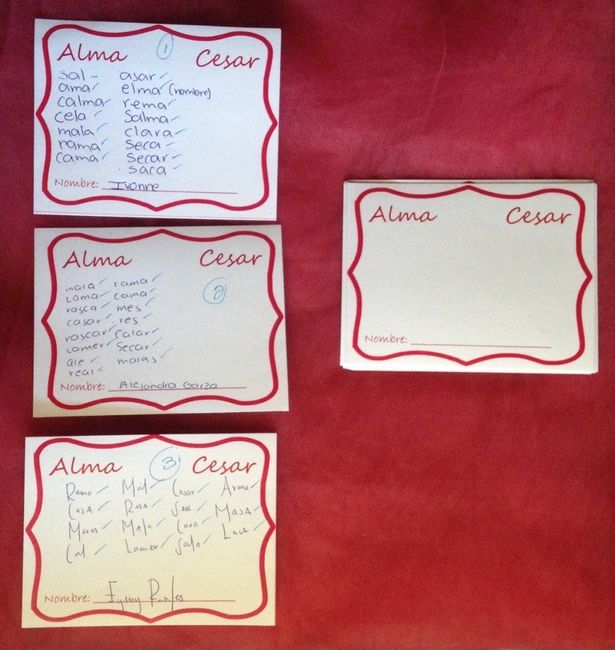 Alma 1 Cesar
sal - asar
ama elma (nombre)
calma rema
cela Salma
mala clara
rama seca
cama secar
saca
Nombre: Ivonne
Alma Cesar
2
mala rama
Lama cama
rasca mes
casar res
rascar Salar
Lamer Secar
ale malas
real
Nombre: Alejandra Garza
Alma 3 Cesar
Rama Mal Casar Arma
Casa Rosa Masa
Mares Mala Cara Laca
Cal Lamer Sala
Nombre:
Alma Cesar
Nombre: